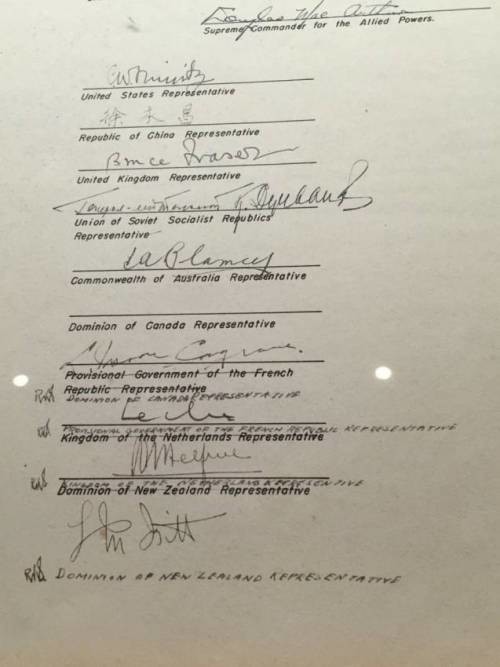 Douglas MacArthur
Supreme Commander for the Allied Powers.
C.W. Nimitz
United States Representative
徐永昌
Republic of China Representative
Bruce Fraser
United Kingdom Representative
Union of Soviet Socialist Republics
Representative
T.A. Blamey
Commonwealth of Australia Representative
Dominion of Canada Representative
Moore Cosgrave.
Provisional Government of the French
Republic Representative
DOMINION OF CANADA REPRESENTATIVE
Leclerc
PROVISIONAL GOVERNMENT OF THE FRENCH REPUBLIC REPRESENTATIVE
Kingdom of the Netherlands Representative
Helfrich
KINGDOM OF THE NETHERLANDS REPRESENTATIVE
Dominion of New Zealand Representative
L M Isitt
DOMINION OF NEW ZEALAND REPRESENTATIVE